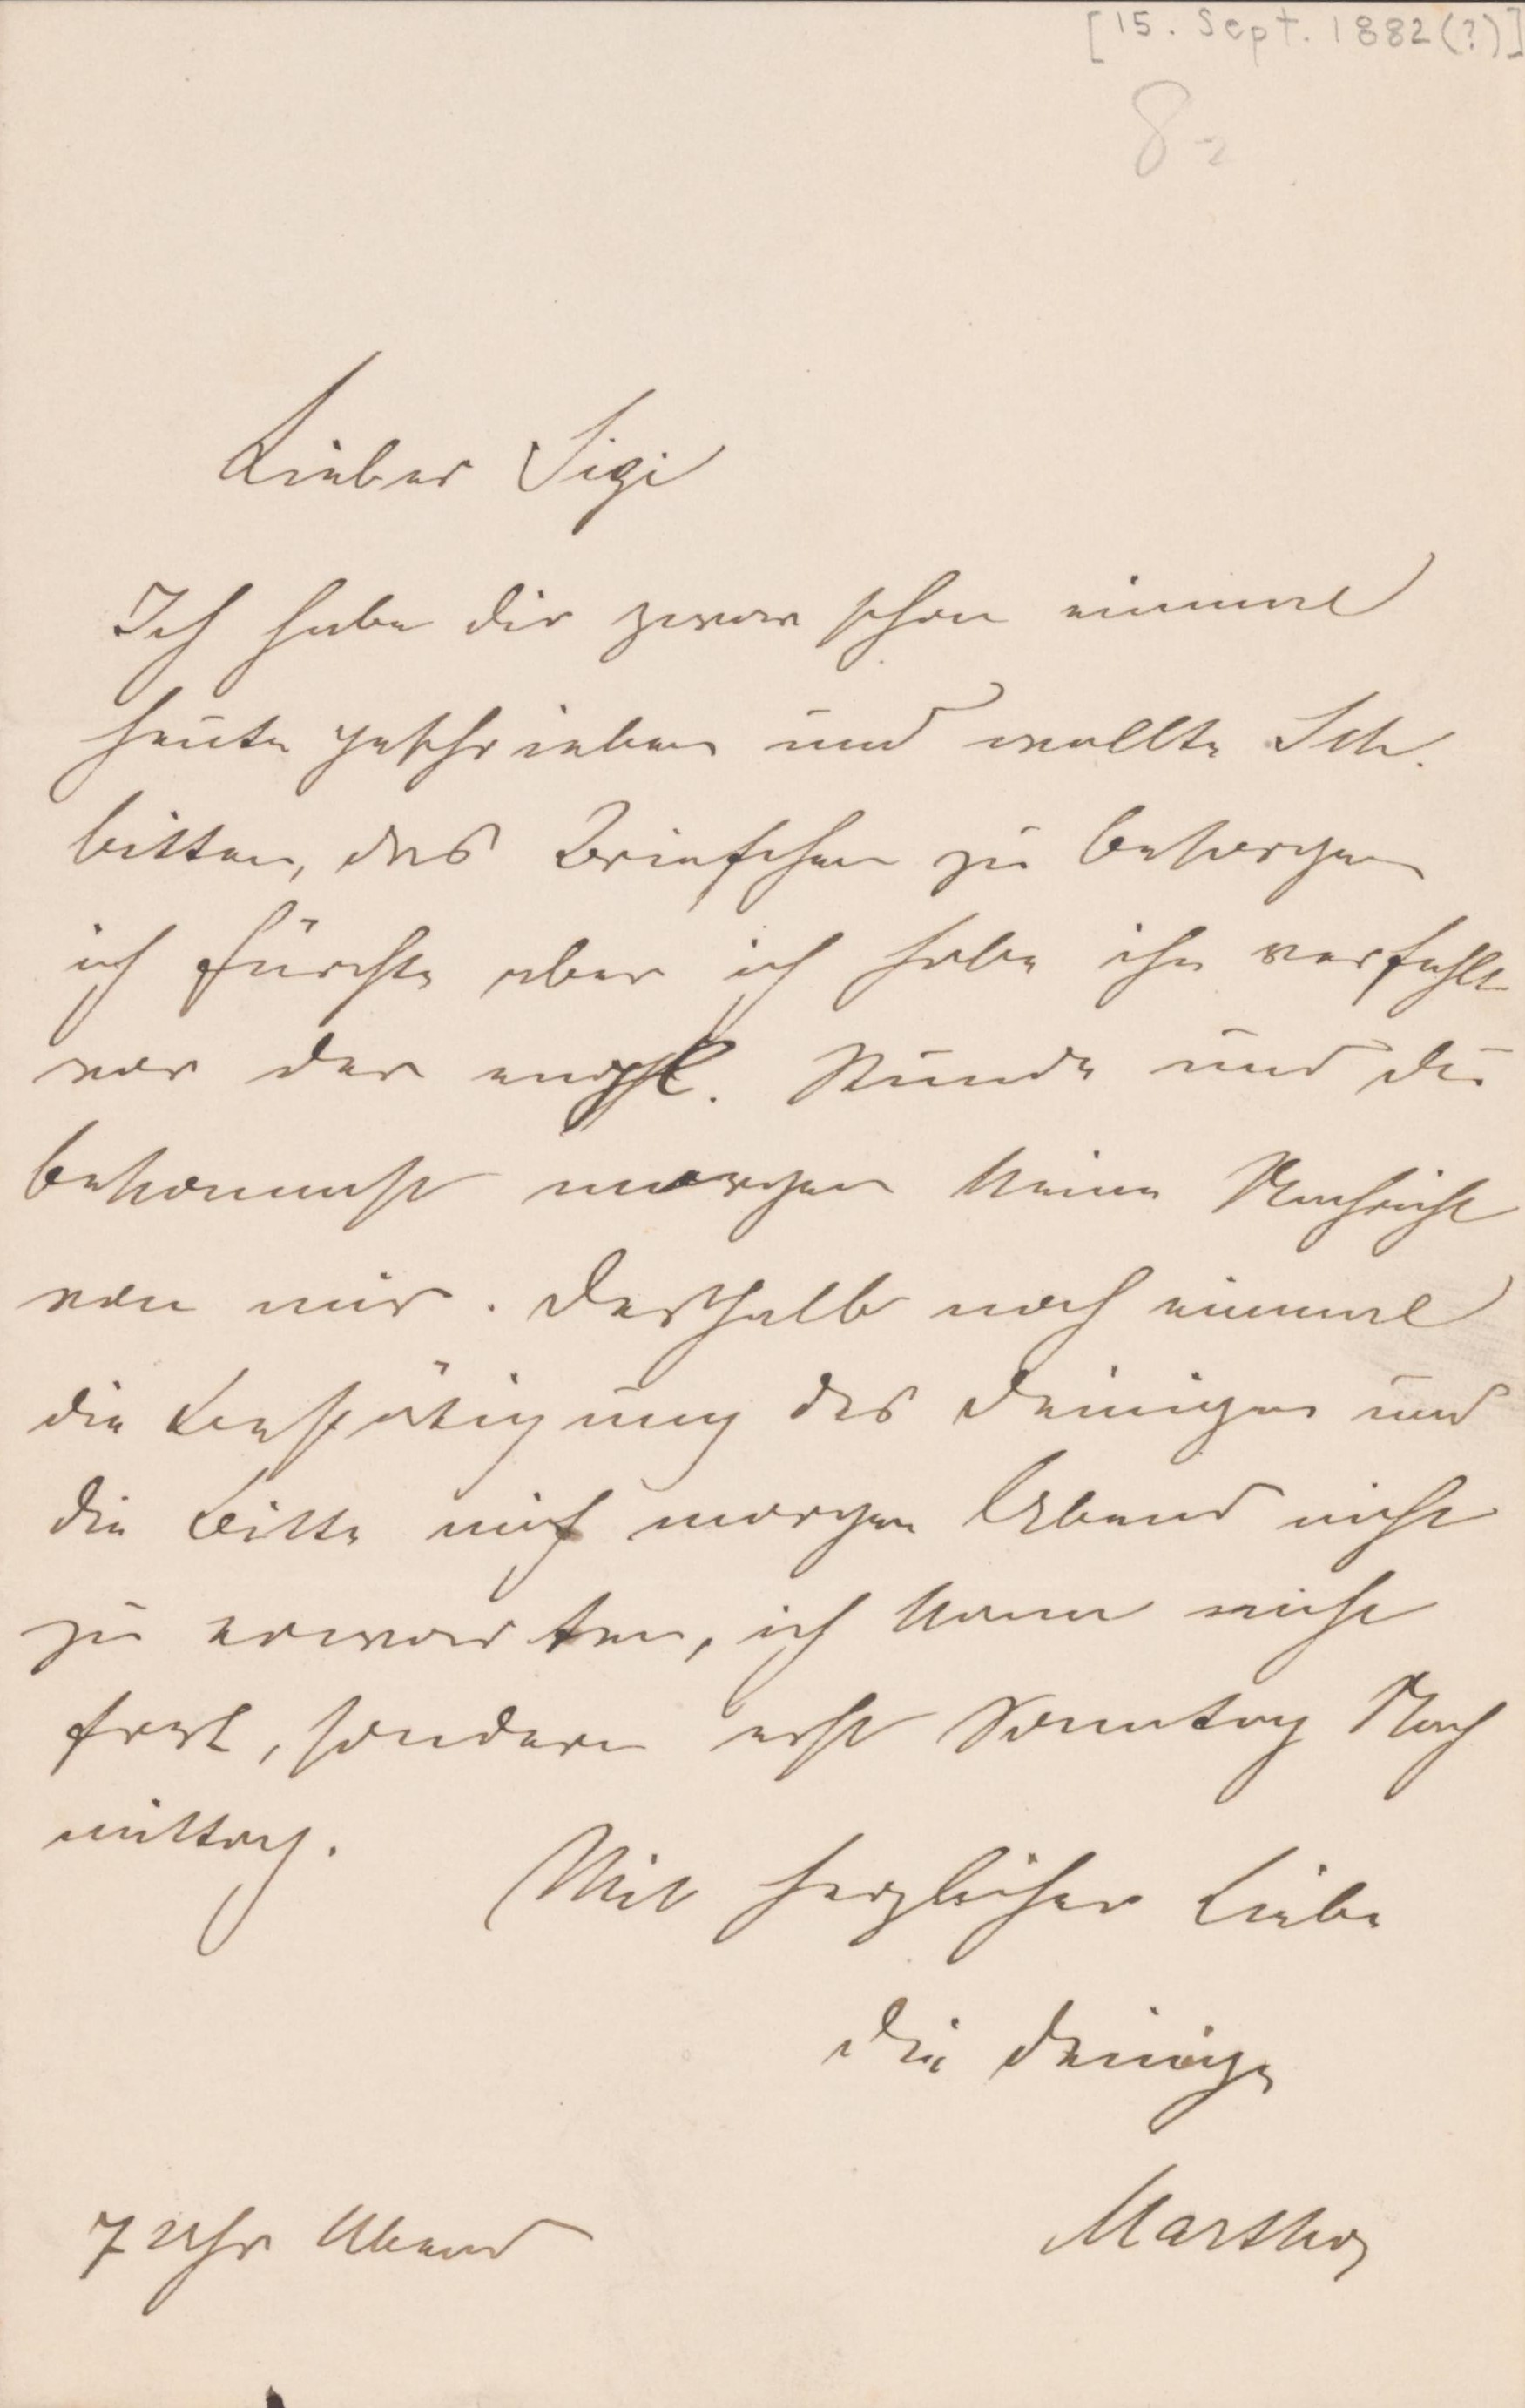 [15. Sept. 1882(?)]
82
Lieber Sigi
Ich habe dir zwar schon einmal
heute geschrieben und wollte Sch.
bitten, das Briefchen zu besorgen
ich fürchte aber ich habe ihn verfehlt
vor der engl. Stunde und du
bekommst morgen keine Nachricht
von mir. Deshalb noch einmal
die Bestätigung des Deinigen und
die Bitte mich morgen Abend nicht
zu erwarten, ich kann nicht
fort, sondern erst Sonntag Nach
mittag.
Mit herzlicher Liebe
die Deinige
Martha
7 Uhr Abend